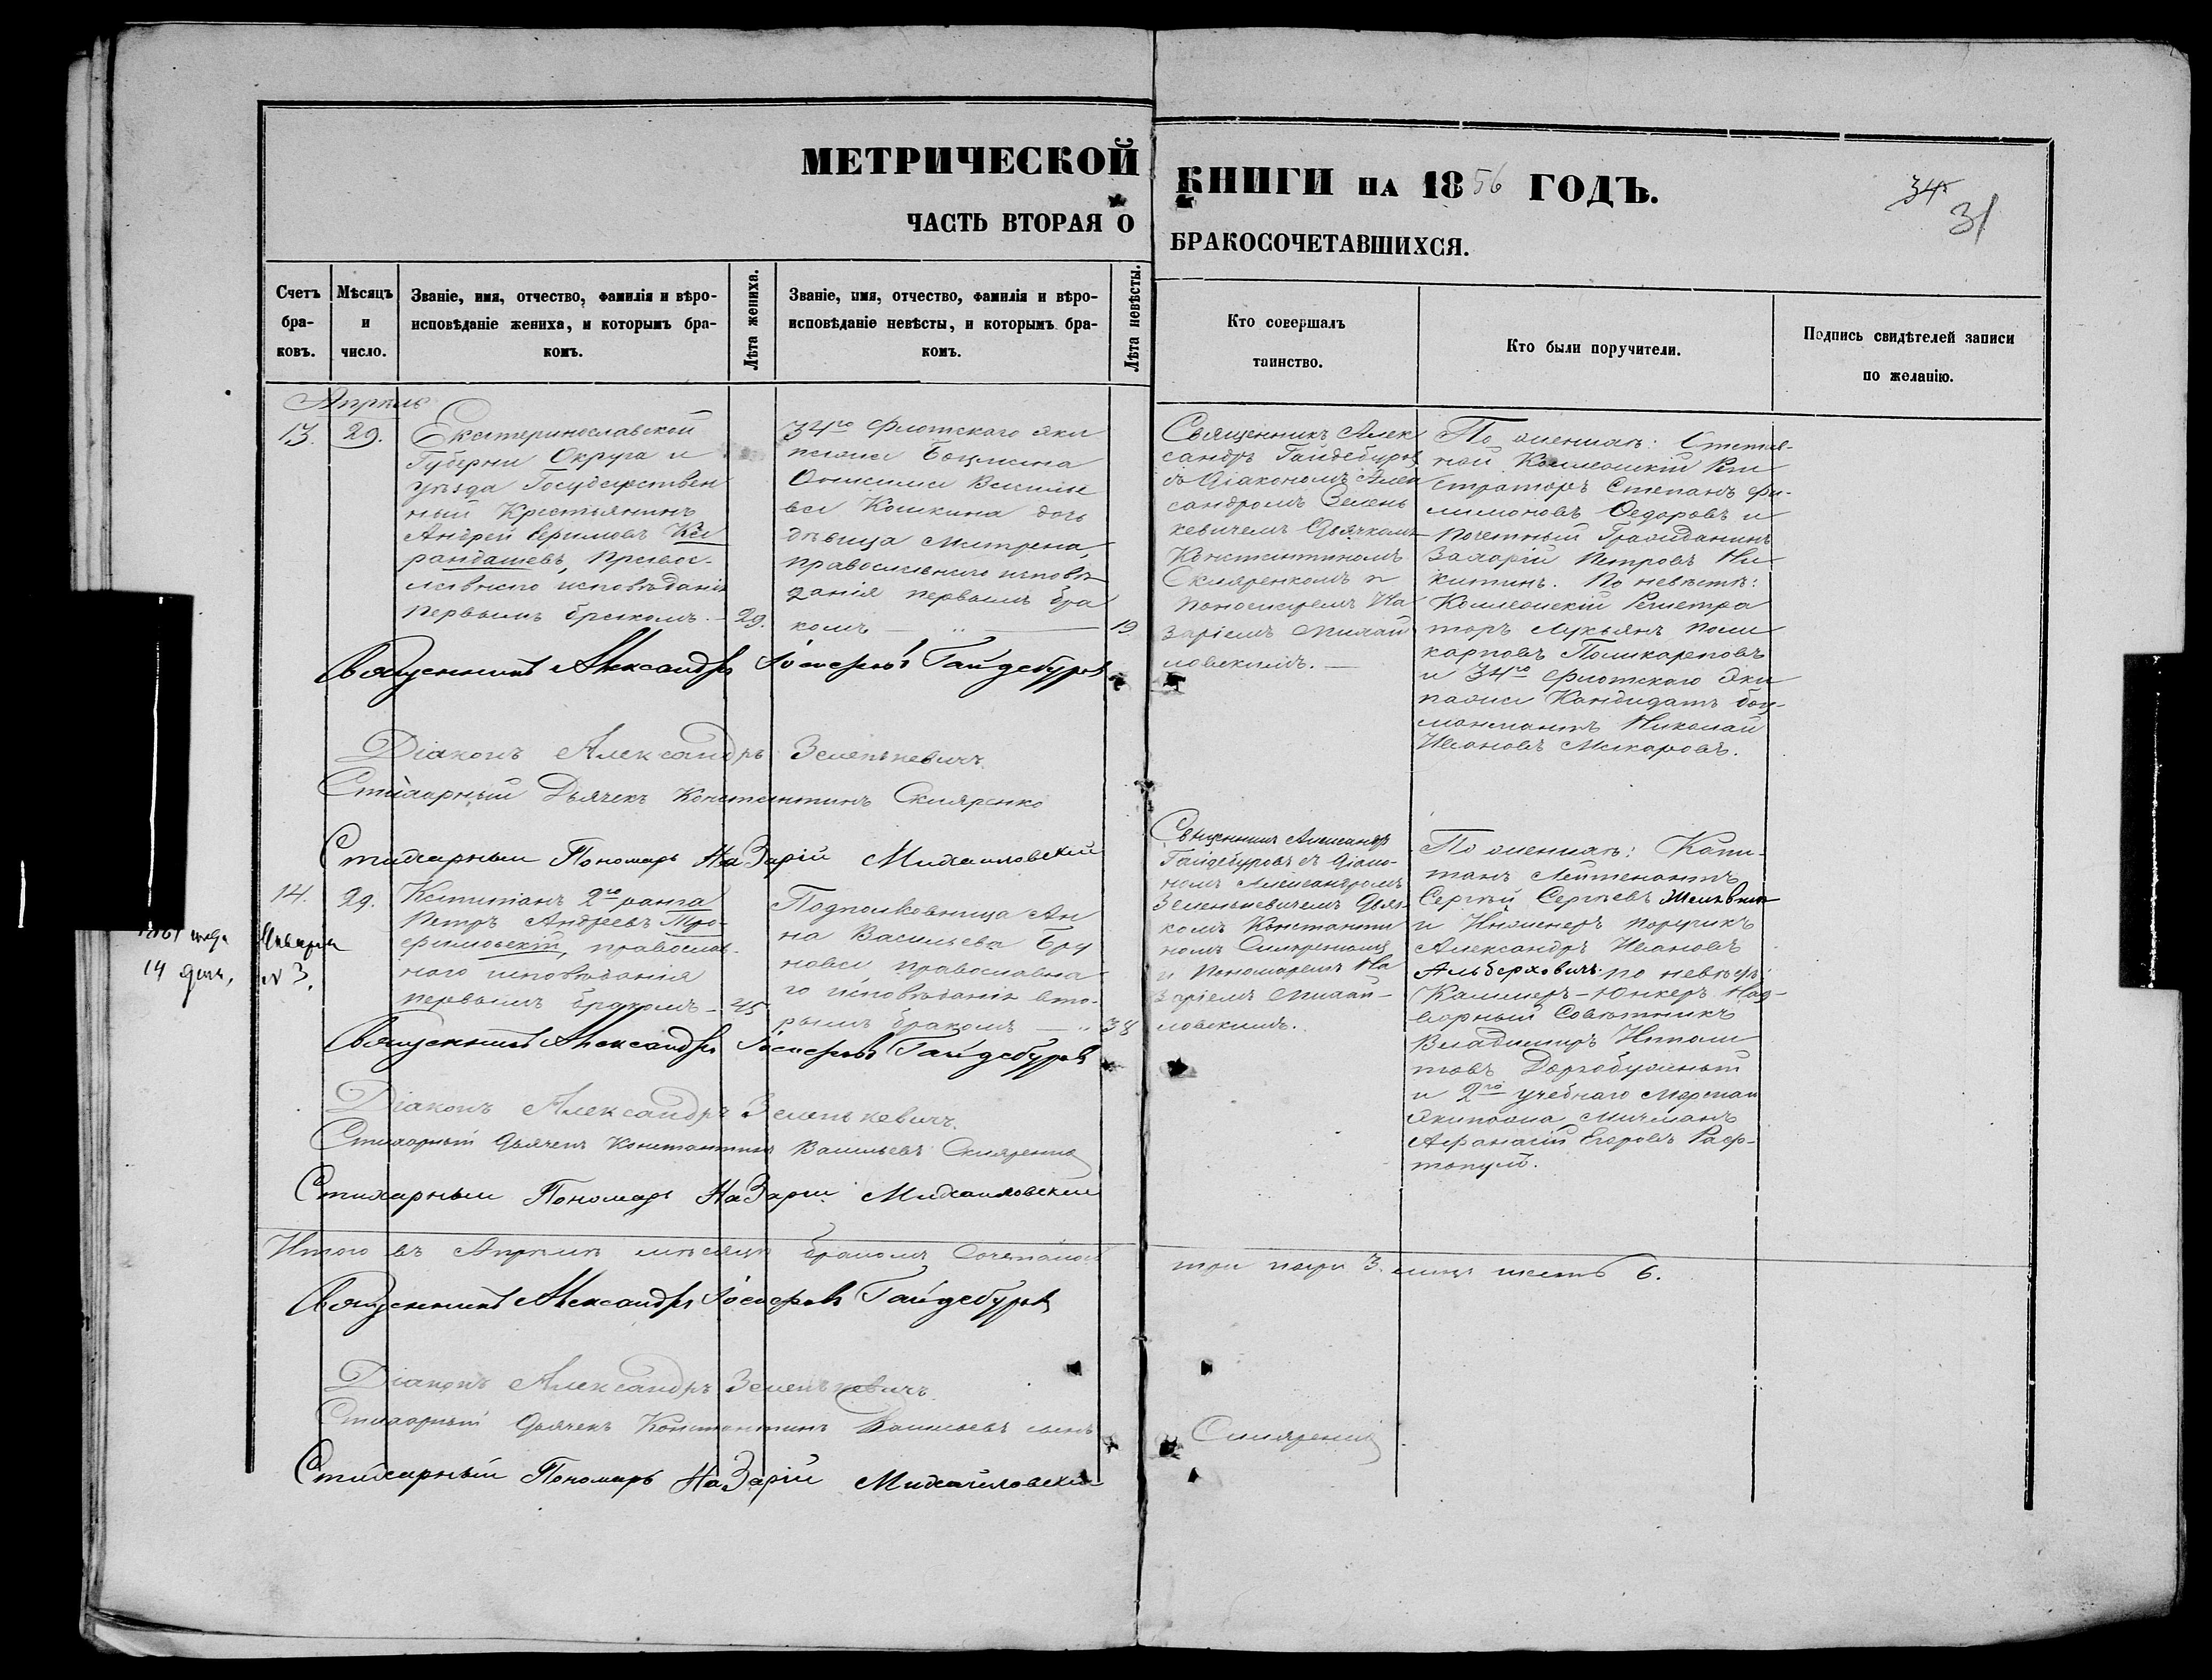 МЕТРИЧЕСКОЙ КНИГИ НА 1856 ГОДЪ.
34
31
ЧАСТЬ ВТОРАЯ О БРАКОСОЧЕТАВШИХСЯ.
Счетъ
бра-
ковъ.
Мѣсяцъ
и
число.
Званіе, имя, отчество, фамилія и вѣро-
исповѣданіе жениха, и которымъ бра-
комъ.
Лѣта жениха.
Званіе, имя, отчество, фамилія и вѣро-
исповѣданіе невѣсты, и которымъ бра-
комъ.
Лѣта невѣсты.
Кто совершалъ
таинство.
Кто были поручители.
Подпись свидѣтелей записи
по желанію.
Апрѣль
13.
29.
Екатеринославской
Губерни Округа и
уѣзда Государствен
ный Крестьянинъ
Андрей Ефимовъ Ка
рандашевъ, Правос-
лавнаго исповѣданія
первымъ бракомъ.
29.
34го Флотскаго эки
пажа Боцмана
Онисима Василь
ева Кошкина дочь
дѣвица Матрена,
православнаго исповѣ
данія первымъ бра
комъ
19
Священникъ Алек
сандръ Гайдебуровъ
съ Діакономъ Алек
сандромъ Зелень
кевичемъ Дьячкомъ
Константиномъ
Скляренкомъ и
пономаремъ На
заріемъ Михай
ловскимъ.
По женихѣ: Отстав-
ной Коллежскій Реги
страторъ Степанъ Фи-
лимоновъ Федоровъ и
Почетный Гражданинъ
Захарій Петровъ Ни
китинъ. По невѣстѣ:
Коллежскій Регистра
торъ Лукьянъ Поли
карповъ Поликарповъ
и 34го Флотскаго Эки
пажа Кандидатъ боц-
манматъ Николай
Ивановъ Макаровъ.
Священникъ Александръ Іосифовъ Гайдебуровъ
Діаконъ Александръ Зеленкевичъ.
Стихарный Дьячекъ Константинъ Скляренко
Стихарный Пономарь Назарій Михайловскій
14.
29.
14 дня,
Января
N 3.
Капитанъ 2го ранга
Петръ Андреевъ Тро-
фимовскій, православ-
наго исповѣданія
первымъ бракомъ
45
Подполковница Ан
на Васильева Бру
нова, православна
го исповѣданія вто-
рымъ бракомъ
38
Священникъ Александръ
Гайдебуровъ съ Діако-
номъ Александромъ
Зеленькевичемъ Дьяч-
комъ Константи
номъ Скляренкомъ
и Пономаремъ На
заріемъ Михай-
ловскимъ.
По женихѣ: Капи-
танъ Лейтенантъ
Сергѣй Сергѣевъ
и Инженеръ поручикъ
Александръ Ивановъ
Альберховичъ. по невѣстѣ:
Каммеръ-Юнкеръ Над-
ворный Совѣтникъ
Владимиръ Иполи
товъ Доргобужиный
и 2го учебнаго Морскаго
экипажа Мичманъ
Афанасій Егоровъ Раф-
топуло.
Священникъ Александръ Іосифовъ Гайдебуровъ
Діаконъ Александръ Зеленькевичъ.
Стихарный Дьячекъ Константинъ Васильевъ Скляренко
Стихарный Пономарь Назарій Михайловскій
Итого въ Апрѣлѣ мѣсяцѣ бракомъ сочеталось три пары 3. лицъ шесть 6.
Священникъ Александръ Іосифовъ Гайдебуровъ
Діаконъ Александръ Зеленькевичъ
Стихарный Дьячекъ Константинъ Васильевъ сынъ Скляренко
Стихарный Пономарь Назарій Михайловскій